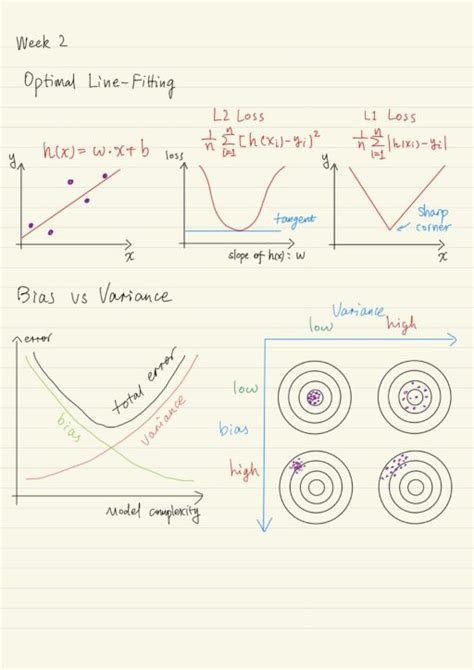 Week 2
Optimal Line-Fitting
L2 Loss
L1 Loss
h(x) = w·x + b
1/n Σ_{i=1}^{n} [h(xi)-yi]²
1/n Σ_{i=1}^{n} |h(xi)-yi|
y
loss
y
tangent
sharp
corner
x
slope of h(x): w
x
Bias vs Variance
Variance
low
high
error
total error
bias
variance
low
bias
high
model complexity